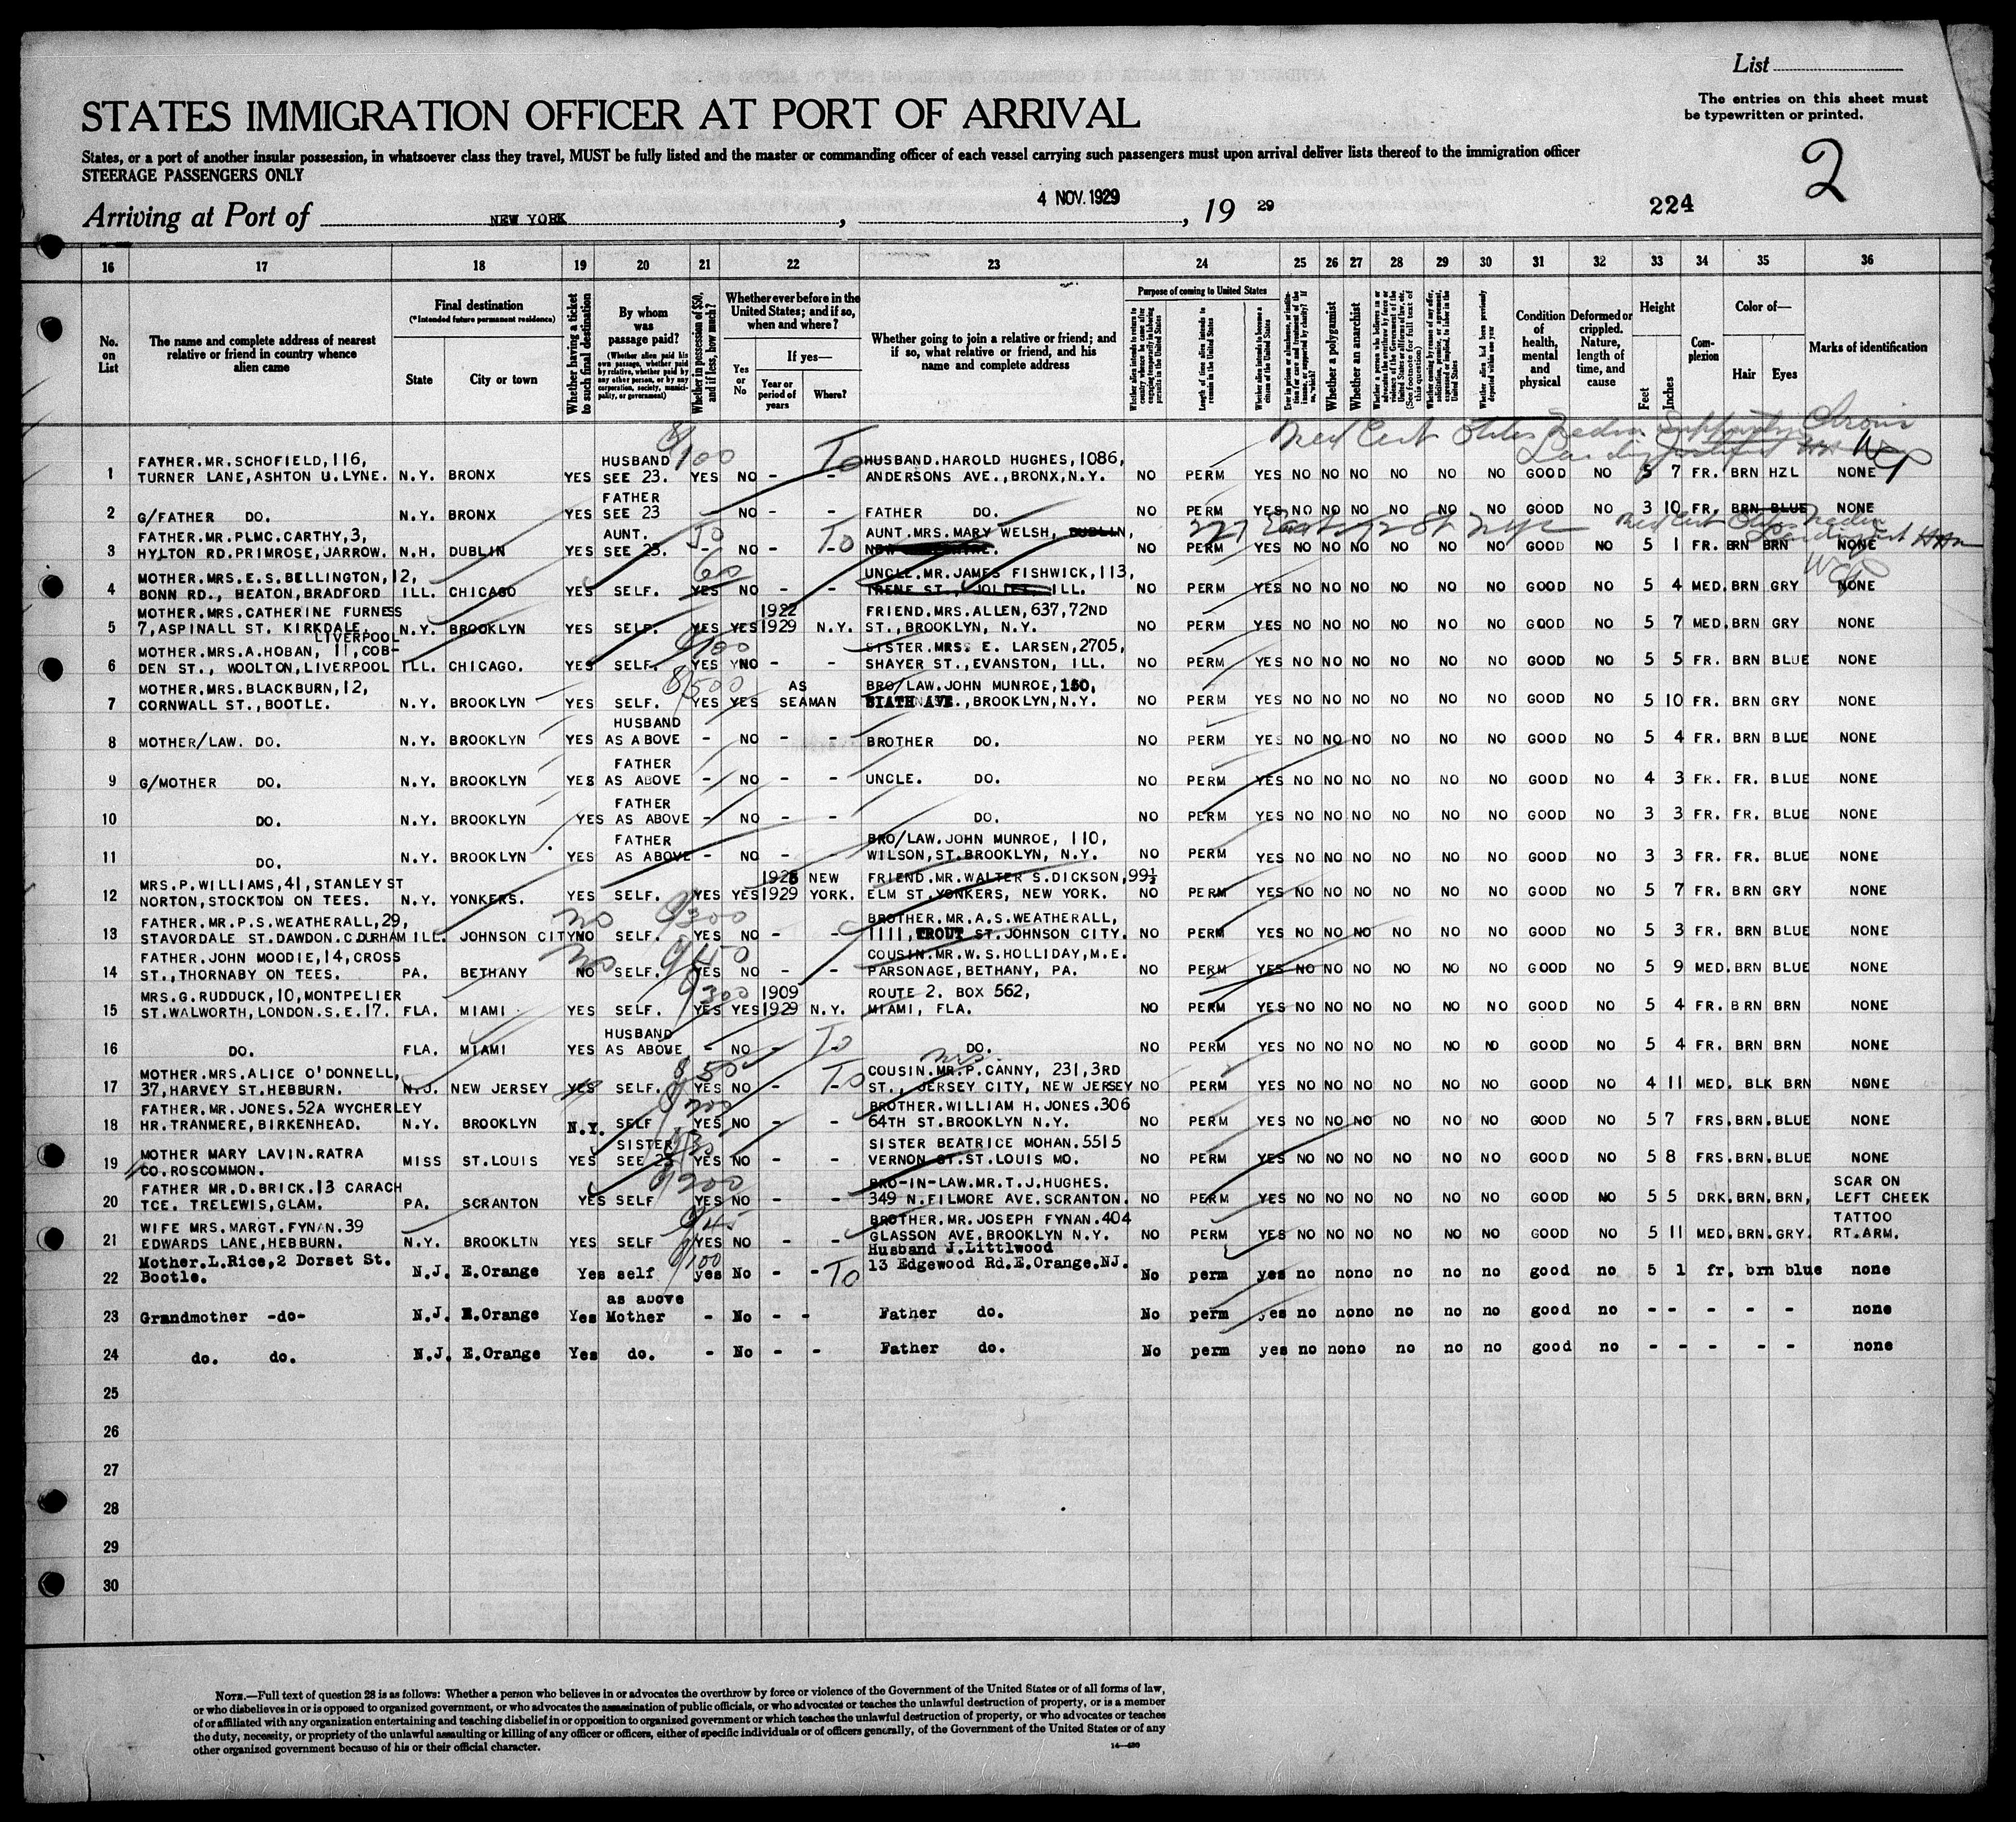 List
The entries on this sheet must
be typewritten or printed.
STATES IMMIGRATION OFFICER AT PORT OF ARRIVAL
2
States, or a port of another insular possession, in whatsoever class they travel, MUST be fully listed and the master or commanding officer of each vessel carrying such passengers must upon arrival deliver lists thereof to the immigration officer
STEERAGE PASSENGERS ONLY
Arriving at Port of NEW YORK, 4 NOV. 1929, 19 29 224
16 17 18 19 20 21 22 23 24 25 26 27 28 29 30 31 32 33 34 35 36
No. on List
The name and complete address of nearest relative or friend in country whence alien came
Final destination
(*Intended future permanent residence)
State
City or town
Whether having a ticket to such final destination
By whom was passage paid?
(Whether alien paid his own passage, whether paid by relative, whether paid by any other person, or by any corporation, society, municipality, or government)
Whether in possession of $50, and if less, how much?
Whether ever before in the United States; and if so, when and where?
Yes or No
If yes—
Year or period of years
Where?
Whether going to join a relative or friend; and if so, what relative or friend, and his name and complete address
Purpose of coming to United States
Length of time alien intends to remain in the United States
Whether alien intends to become a citizen of the United States
Whether a polygamist
Whether an anarchist
Whether alien had been previously deported within one year
Condition of health, mental and physical
Deformed or crippled. Nature, length of time, and cause
Height
Feet
Inches
Complexion
Color of—
Hair
Eyes
Marks of identification
1 FATHER.MR.SCHOFIELD,116, HUSBAND 8/100 To HUSBAND.HAROLD HUGHES,1086,
TURNER LANE,ASHTON U.LYNE. N.Y. BRONX YES SEE 23. YES NO - - ANDERSONS AVE.,BRONX,N.Y. NO PERM YES NO NO NO NO NO NO GOOD NO 5 7 FR. BRN HZL NONE
FATHER
2 G/FATHER DO. N.Y. BRONX YES SEE 23 - NO - - FATHER DO. NO PERM YES NO NO NO NO NO NO GOOD NO 3 10 FR. BRN BLUE NONE
3 FATHER.MR.PLMC.CARTHY,3, AUNT. 50 To AUNT.MRS.MARY WELSH, DUBLIN, 227 East 72 St NYC
HYLTON RD.PRIMROSE,JARROW. N.H. DUBLIN YES SEE 23. - NO - - NO PERM YES NO NO NO NO NO NO GOOD NO 5 1 FR. BRN BRN NONE
4 MOTHER.MRS.E.S.BELLINGTON,12, 60 UNCLE.MR.JAMES FISHWICK,113,
BONN RD., HEATON,BRADFORD ILL. CHICAGO YES SELF. YES NO - - IRENE ST., JOLIET, ILL. NO PERM YES NO NO NO NO NO NO GOOD NO 5 4 MED. BRN GRY NONE
5 MOTHER.MRS.CATHERINE FURNESS 1922 FRIEND.MRS.ALLEN,637,72ND
7,ASPINALL ST. KIRKDALE. N.Y. BROOKLYN YES SELF. YES YES 1929 N.Y. ST.,BROOKLYN, N.Y. NO PERM YES NO NO NO NO NO NO GOOD NO 5 7 MED. BRN GRY NONE
LIVERPOOL
6 MOTHER.MRS.A.HOBAN, 11,COB- 8/100 SISTER.MRS. E. LARSEN,2705,
DEN ST., WOOLTON,LIVERPOOL ILL. CHICAGO. YES SELF. YES NO - - SHAYER ST.,EVANSTON, ILL. NO PERM YES NO NO NO NO NO NO GOOD NO 5 5 FR. BRN BLUE NONE
7 MOTHER.MRS.BLACKBURN,12, 8/500 AS BRO/LAW.JOHN MUNROE,
CORNWALL ST.,BOOTLE. N.Y. BROOKLYN YES SELF. YES YES SEAMAN BROOKLYN,N.Y. NO PERM YES NO NO NO NO NO NO GOOD NO 5 10 FR. BRN GRY NONE
HUSBAND
8 MOTHER/LAW. DO. N.Y. BROOKLYN YES AS ABOVE - NO - - BROTHER DO. NO PERM YES NO NO NO NO NO NO GOOD NO 5 4 FR. BRN BLUE NONE
FATHER
9 G/MOTHER DO. N.Y. BROOKLYN YES AS ABOVE - NO - - UNCLE. DO. NO PERM YES NO NO NO NO NO NO GOOD NO 4 3 FR. FR. BLUE NONE
FATHER
10 DO. N.Y. BROOKLYN YES AS ABOVE - NO - - DO. NO PERM YES NO NO NO NO NO NO GOOD NO 3 3 FR. FR. BLUE NONE
FATHER BRO/LAW.JOHN MUNROE, 110,
11 DO. N.Y. BROOKLYN YES AS ABOVE - NO - - WILSON,ST.BROOKLYN, N.Y. NO PERM YES NO NO NO NO NO NO GOOD NO 3 3 FR. FR. BLUE NONE
12 MRS.P.WILLIAMS,41,STANLEY ST NEW FRIEND.MR.WALTER S.DICKSON,99½
NORTON,STOCKTON ON TEES. N.Y. YONKERS. YES SELF. YES YES 1929 YORK. ELM ST.YONKERS, NEW YORK. NO PERM YES NO NO NO NO NO NO GOOD NO 5 7 FR. BRN GRY NONE
13 FATHER.MR.P.S.WEATHERALL,29, no 8/300 BROTHER.MR.A.S.WEATHERALL,
STAVORDALE ST.DAWDON.C.DURHAM ILL. JOHNSON CITY NO SELF. YES NO - - 1111,TROUT ST.JOHNSON CITY. NO PERM YES NO NO NO NO NO NO GOOD NO 5 3 FR. BRN BLUE NONE
14 FATHER.JOHN MOODIE,14,CROSS no COUSIN.MR.W.S.HOLLIDAY,M.E.
ST.,THORNABY ON TEES. PA. BETHANY NO SELF. YES NO - - PARSONAGE,BETHANY, PA. NO PERM YES NO NO NO NO NO NO GOOD NO 5 9 MED. BRN BLUE NONE
15 MRS.G.RUDDUCK,10,MONTPELIER 300 1909 ROUTE 2. BOX 562,
ST.WALWORTH,LONDON.S.E.17. FLA. MIAMI YES SELF. YES YES 1929 N.Y. MIAMI, FLA. NO PERM YES NO NO NO NO NO NO GOOD NO 5 4 FR. BRN BRN NONE
HUSBAND
16 DO. FLA. MIAMI YES AS ABOVE - NO - To DO. NO PERM YES NO NO NO NO NO NO GOOD NO 5 4 FR. BRN BRN NONE
17 MOTHER.MRS.ALICE O'DONNELL, 8/50 To Mrs. COUSIN.MR.P.CANNY, 231,3RD
37,HARVEY ST.HEBBURN. N.J. NEW JERSEY YES SELF. YES NO - - ST., JERSEY CITY, NEW JERSEY NO PERM YES NO NO NO NO NO NO GOOD NO 4 11 MED. BLK BRN NONE
18 FATHER.MR.JONES.52A WYCHERLEY BROTHER.WILLIAM H.JONES.306
HR.TRANMERE,BIRKENHEAD. N.Y. BROOKLYN N.Y. SELF YES NO - - 64TH ST.BROOKLYN N.Y. NO PERM YES NO NO NO NO NO NO GOOD NO 5 7 FRS.BRN.BLUE NONE
19 MOTHER MARY LAVIN.RATRA SISTER SISTER BEATRICE MOHAN.5515
CO.ROSCOMMON. MISS ST.LOUIS YES SEE 23 YES NO - - VERNON ST.ST.LOUIS MO. NO PERM YES NO NO NO NO NO NO GOOD NO 5 8 FRS.BRN.BLUE NONE
20 FATHER MR.D.BRICK.13 CARACH 8/200 BRO-IN-LAW.MR.T.J.HUGHES. SCAR ON
TCE. TRELEWIS,GLAM. PA. SCRANTON YES SELF YES NO - - 349 N.FILMORE AVE.SCRANTON. NO PERM YES NO NO NO NO NO NO GOOD NO 5 5 DRK.BRN.BRN, LEFT CHEEK
21 WIFE MRS.MARGT.FYNAN.39 8/45 BROTHER.MR.JOSEPH FYNAN.404 TATTOO
EDWARDS LANE,HEBBURN. N.Y. BROOKLTN YES SELF YES NO - - GLASSON AVE.BROOKLYN N.Y. NO PERM YES NO NO NO NO NO NO GOOD NO 5 11 MED.BRN.GRY. RT.ARM.
22 Mother.L.Rice,2 Dorset St. 100 Husband J.Littlwood
Bootle. N.J. E.Orange Yes self yes No - - To 13 Edgewood Rd.E.Orange.NJ. No perm yes no nono no no no good no 5 1 fr. brn blue none
as above
23 Grandmother -do- N.J. E.Orange Yes Mother - No - - Father do. No perm yes no nono no no no good no - - - - - none
24 do. do. N.J. E.Orange Yes do. - No - - Father do. No perm yes no nono no no no good no - - - - - none
25
26
27
28
29
30
NOTE.—Full text of question 28 is as follows: Whether a person who believes in or advocates the overthrow by force or violence of the Government of the United States or of all forms of law,
or who disbelieves in or is opposed to organized government, or who advocates the assassination of public officials, or who advocates or teaches the unlawful destruction of property, or is a member
of or affiliated with any organization entertaining and teaching disbelief in or opposition to organized government or which teaches the unlawful destruction of property, or who advocates or teaches
the duty, necessity, or propriety of the unlawful assaulting or killing of any officer or officers, either of specific individuals or of officers generally, of the Government of the United States or of any
other organized government because of his or their official character.